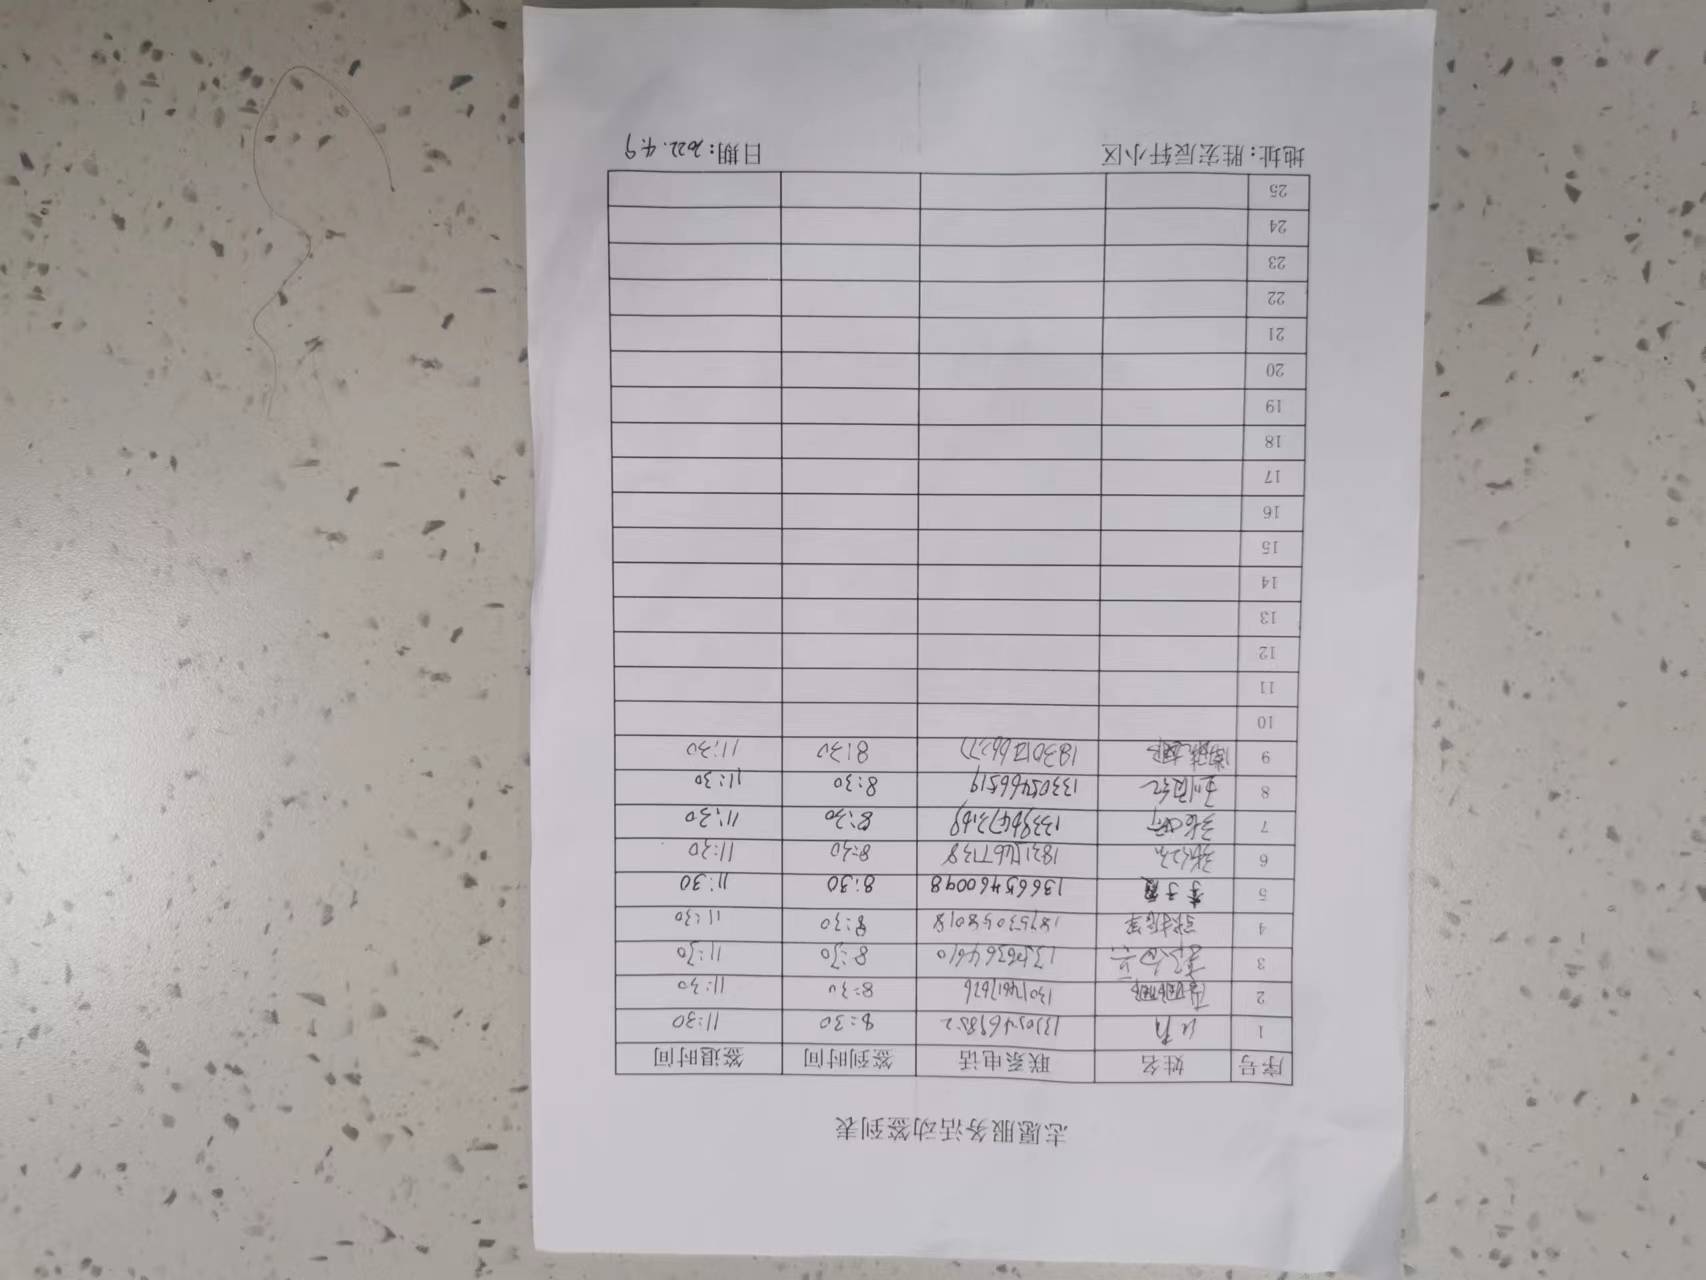 志愿服务活动签到表
序号 姓名 联系电话 签到时间 签退时间
1 8:30 11:30
2 13014617626 8:30 11:30
3 8:30 11:30
4 18753058018 8:30 11:30
5 李子霞 13665460098 8:30 11:30
6 8:30 11:30
7 13396473169 8:30 11:30
8 13305466519 8:30 11:30
9 8:30 11:30
10
11
12
13
14
15
16
17
18
19
20
21
22
23
24
25
地址:胜宏辰轩小区 日期:2022.4.9